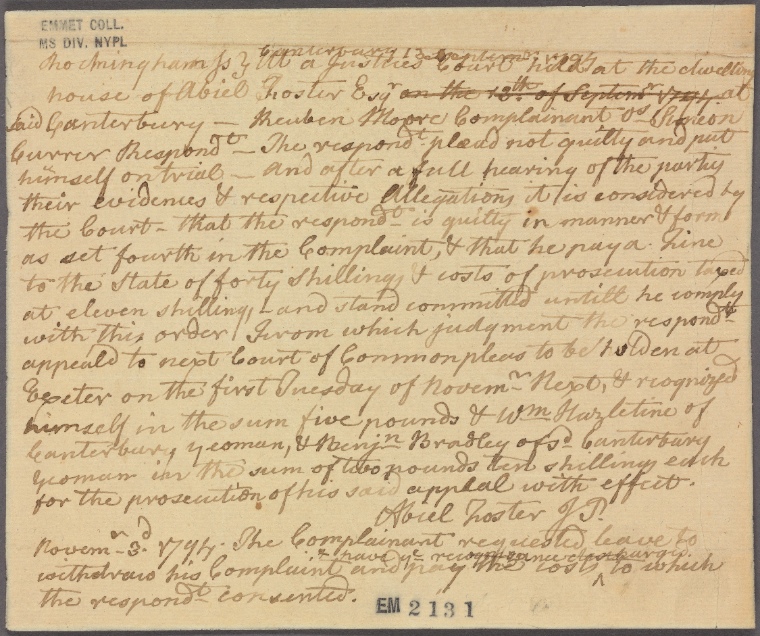 EMMET COLL.
MS DIV. NYPL
Canterbury 13 September 1794
Rockingham Ss } At a Justices Court held at the dwelling
house of Abiel Foster Esqr on the 13th of Septemr 1794 at
said Canterbury — Reuben Moore Complainant vs Simeon
Currer Respondt — The respondt plead not guilty and put
himself on trial — and after a full hearing of the party
their evidences & respective Allegations it is considered by
the Court – that the respondt is guilty in manner & form
as set fourth in the Complaint, & that he pay a Fine
to the State of forty shillings & costs of prosecution taxed
at eleven shillings – and stand committed untill he comply
with this order, From which judgment the respondt
appeald to next Court of Common pleas to be holden at
Exeter on the first Tuesday of Novemr Next, & recognized
himself in the sum five pounds & Wm Hazletine of
Canterbury yeoman, & Benjn Bradley of sd Canterbury
yeoman in the sum of two pounds ten shillings each
for the prosecution of his said appeal with effect.
Abiel Foster J P.
Novemr 3d 1794. The Complainant requested leave to
& have ye recognizance discharged.
withdraw his Complaint and pay the costs ^ to which
the respondt consented.
EM 2131